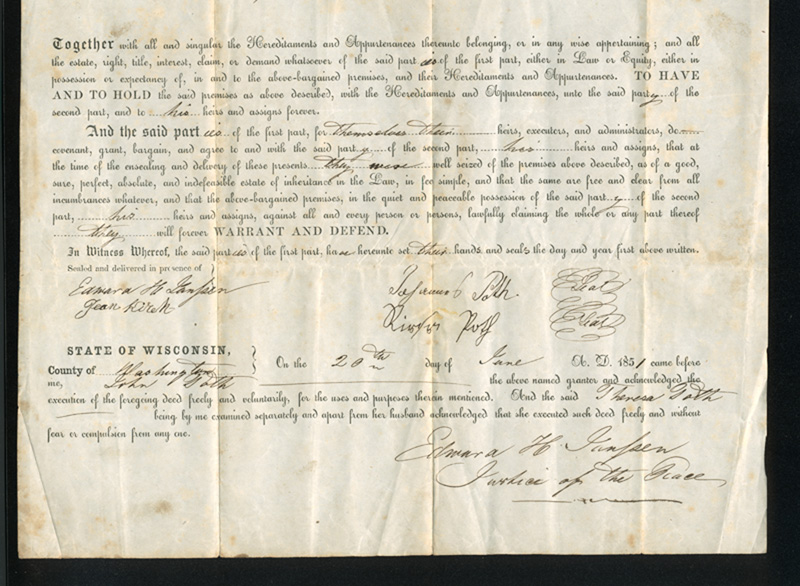 Together with all and singular the Hereditaments and Appurtenances thereunto belonging, or in any wise appertaining; and all
the estate, right, title, interest, claim, or demand whatsoever of the said part ies of the first part, either in Law or Equity, either in
possession or expectancy of, in and to the above-bargained premises, and their Hereditaments and Appurtenances. TO HAVE
AND TO HOLD the said premises as above described, with the Hereditaments and Appurtenances, unto the said party of the
second part, and to his heirs and assigns forever.
And the said part ies of the first part, for themselves their heirs, executors, and administrators, do
covenant, grant, bargain, and agree to and with the said part y of the second part, his heirs and assigns, that at
the time of the ensealing and delivery of these presents they were well seized of the premises above described, as of a good,
sure, perfect, absolute, and indefensible estate of inheritance in the Law, in fee simple, and that the same are free and clear from all
incumbrances whatever, and that the above-bargained premises, in the quiet and peaceable possession of the said part y of the second
part, his heirs and assigns, against all and every person or persons, lawfully claiming the whole or any part thereof
they will forever WARRANT AND DEFEND.
In Witness Whereof, the said part ies of the first part, have hereunto set their hands and seals the day and year first above written.
Sealed and delivered in presence of
Edward H. Janssen
Jean Kirch
Poth. Seal
Poth Seal
STATE OF WISCONSIN,
County of Washington
On the 20th day of June A. D. 1851 came before
me, John Poth the above named grantor and acknowledged the
execution of the foregoing deed freely and voluntarily, for the uses and purposes therein mentioned. And the said Theresa Poth
being by me examined separately and apart from her husband acknowledged that she executed such deed freely and without
fear or compulsion from any one.
Edward H. Janssen
Justice of the Peace